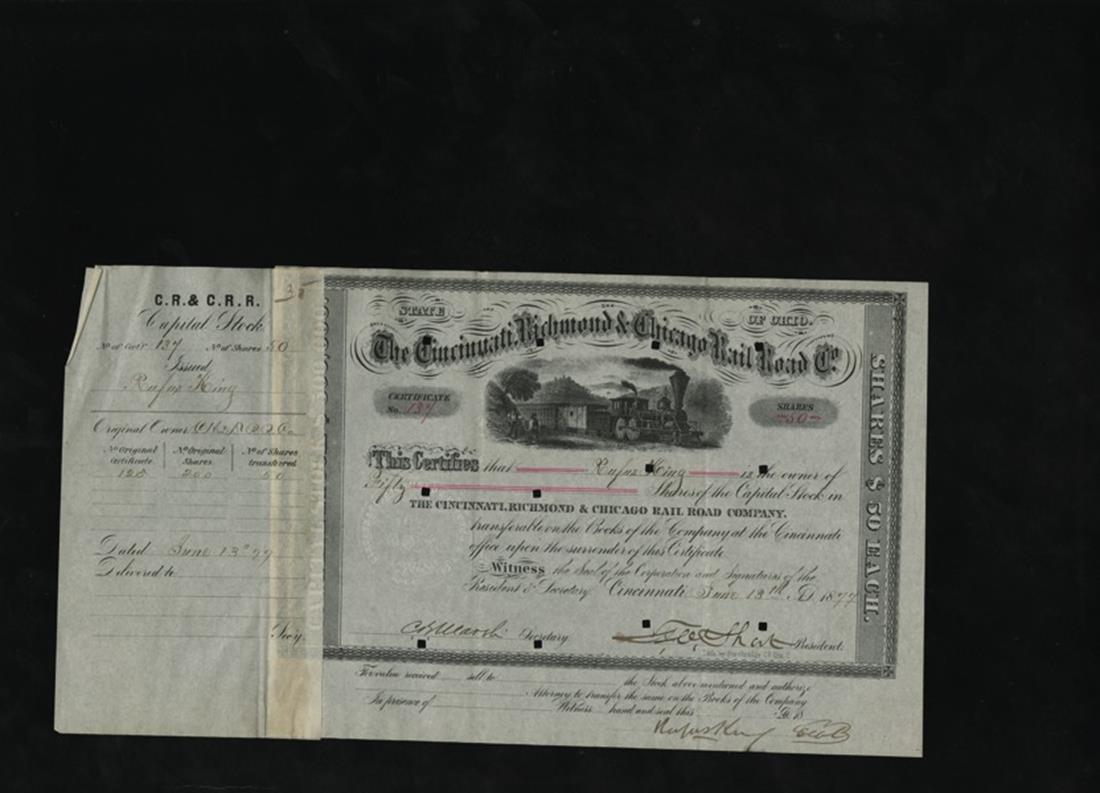 C.R. & C.R.R.
Capital Stock
No of Cert 137 No of Shares 50
Issued
Rufus King
Original Owner
No Original Certificate No Original Shares No of Shares transferred
200 50
Dated June 13th 77
Delivered to
Sec'y.
35
STATE OF OHIO.
The Cincinnati, Richmond & Chicago Rail Road Co.
CERTIFICATE
No. 137
SHARES
50
This Certifies that Rufus King is the owner of
Fifty Shares of the Capital Stock in
THE CINCINNATI, RICHMOND & CHICAGO RAIL ROAD COMPANY,
transferable on the Books of the Company at the Cincinnati
office upon the surrender of this Certificate
Witness the Seal of the Corporation and Signatures of the
President & Secretary Cincinnati June 13th A.D. 1877
Secretary. President.
SHARES $ 50 EACH.
For value received sell to the Stock above mentioned and authorize
Attorney to transfer the same on the Books of the Company
In presence of Witness hand and seal this A.D. 18
Rufus King